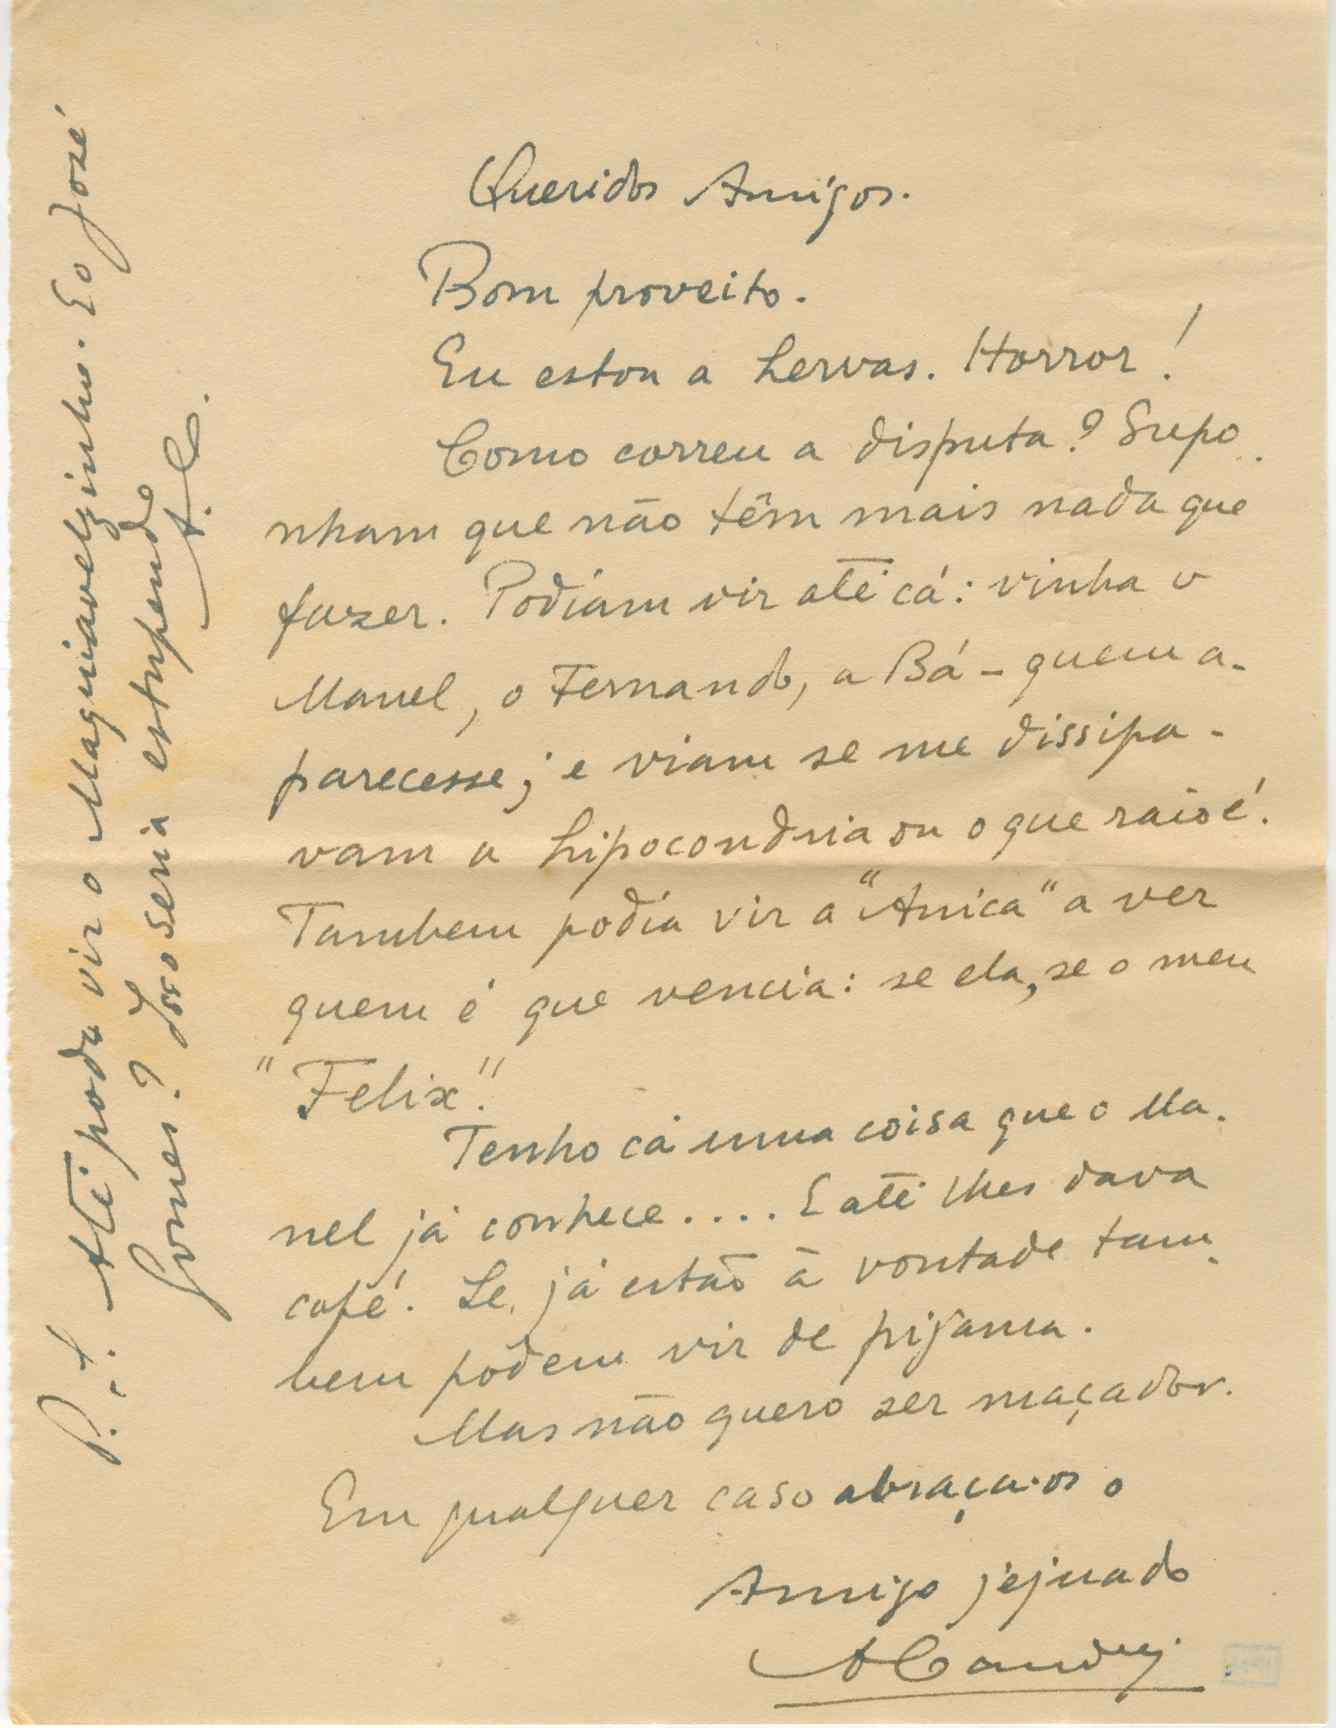 Queridos Amigos.
Bom proveito.
Eu estou a hervas. Horror!
Como correu a disputa? Supo-
nham que não têm mais nada que
fazer. Podiam vir até cá: vinha o
Manel, o Fernando, a Bá - quem a-
parecesse; e viam se me dissipa-
vam a hipocondria ou o que raio é.
Tambem podia vir a "Anica" a ver
quem é que vencia: se ela, se o meu
"Felix".
Tenho cá uma coisa que o Ma-
nel já conhece.... E até lhes dava
café. Se já estão à vontade tam-
bem podem vir de pijama.
Mas não quero ser maçador.
Em qualquer caso abraça-os o
Amigo jejuado
P.S. Até podia vir o Maquiavelzinho. E o José
Gomes? Isso seria estupendo
A.C.